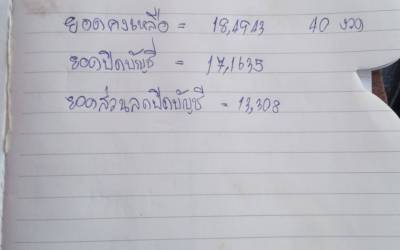 ยอดคงเหลือ = 18,4943 40 งวด
ยอดปิดบัญชี = 17,1635
ยอดส่วนลดปิดบัญชี = 13,308